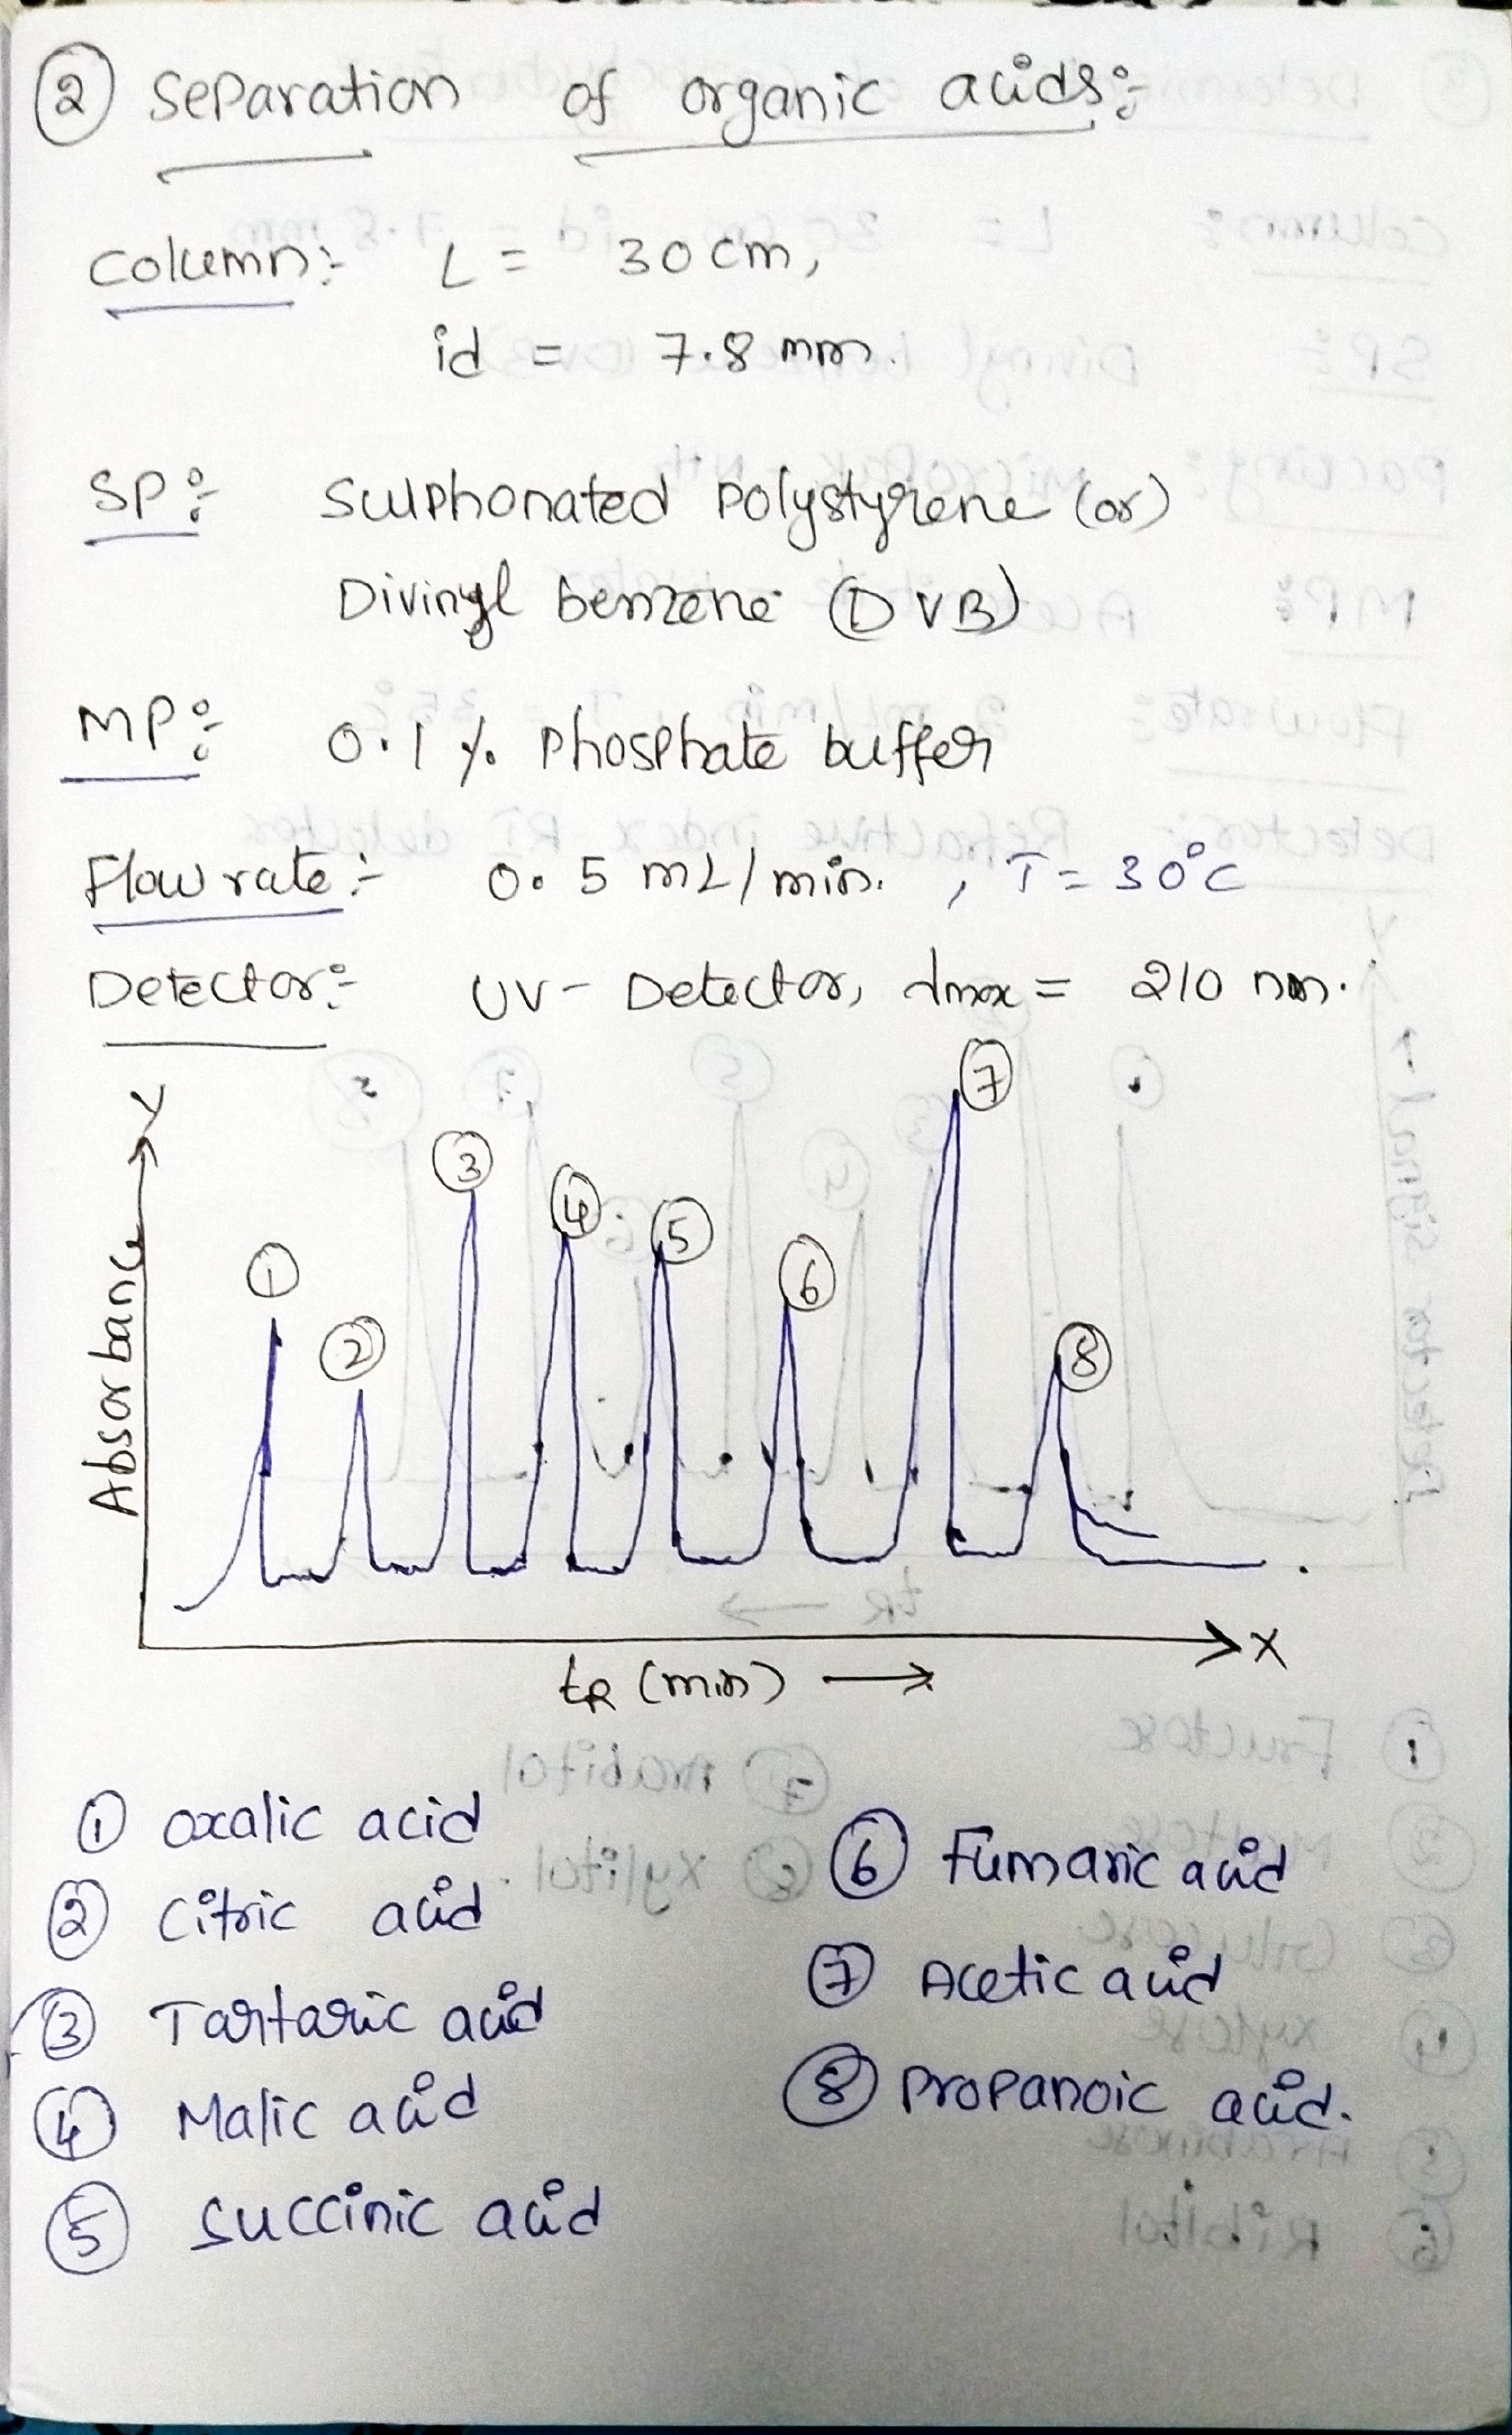 ② Separation of organic acids:-
Column:- L = 30 cm,
id = 7.8 mm.
SP:- Sulphonated polystyrene (or)
Divinyl benzene (DVB)
MP:- 0.1 % phosphate buffer
Flow rate:- 0.5 mL/min. , T = 30°C
Detector:- UV - Detector, λmax = 210 nm.
Y
⑦
③
④
⑤
①
⑥
②
⑧
Absorbance
X
tR (min) →
① oxalic acid
② Citric acid
③ Tartaric acid
④ Malic acid
⑤ Succinic acid
⑥ Fumaric acid
⑦ Acetic acid
⑧ Propanoic acid.